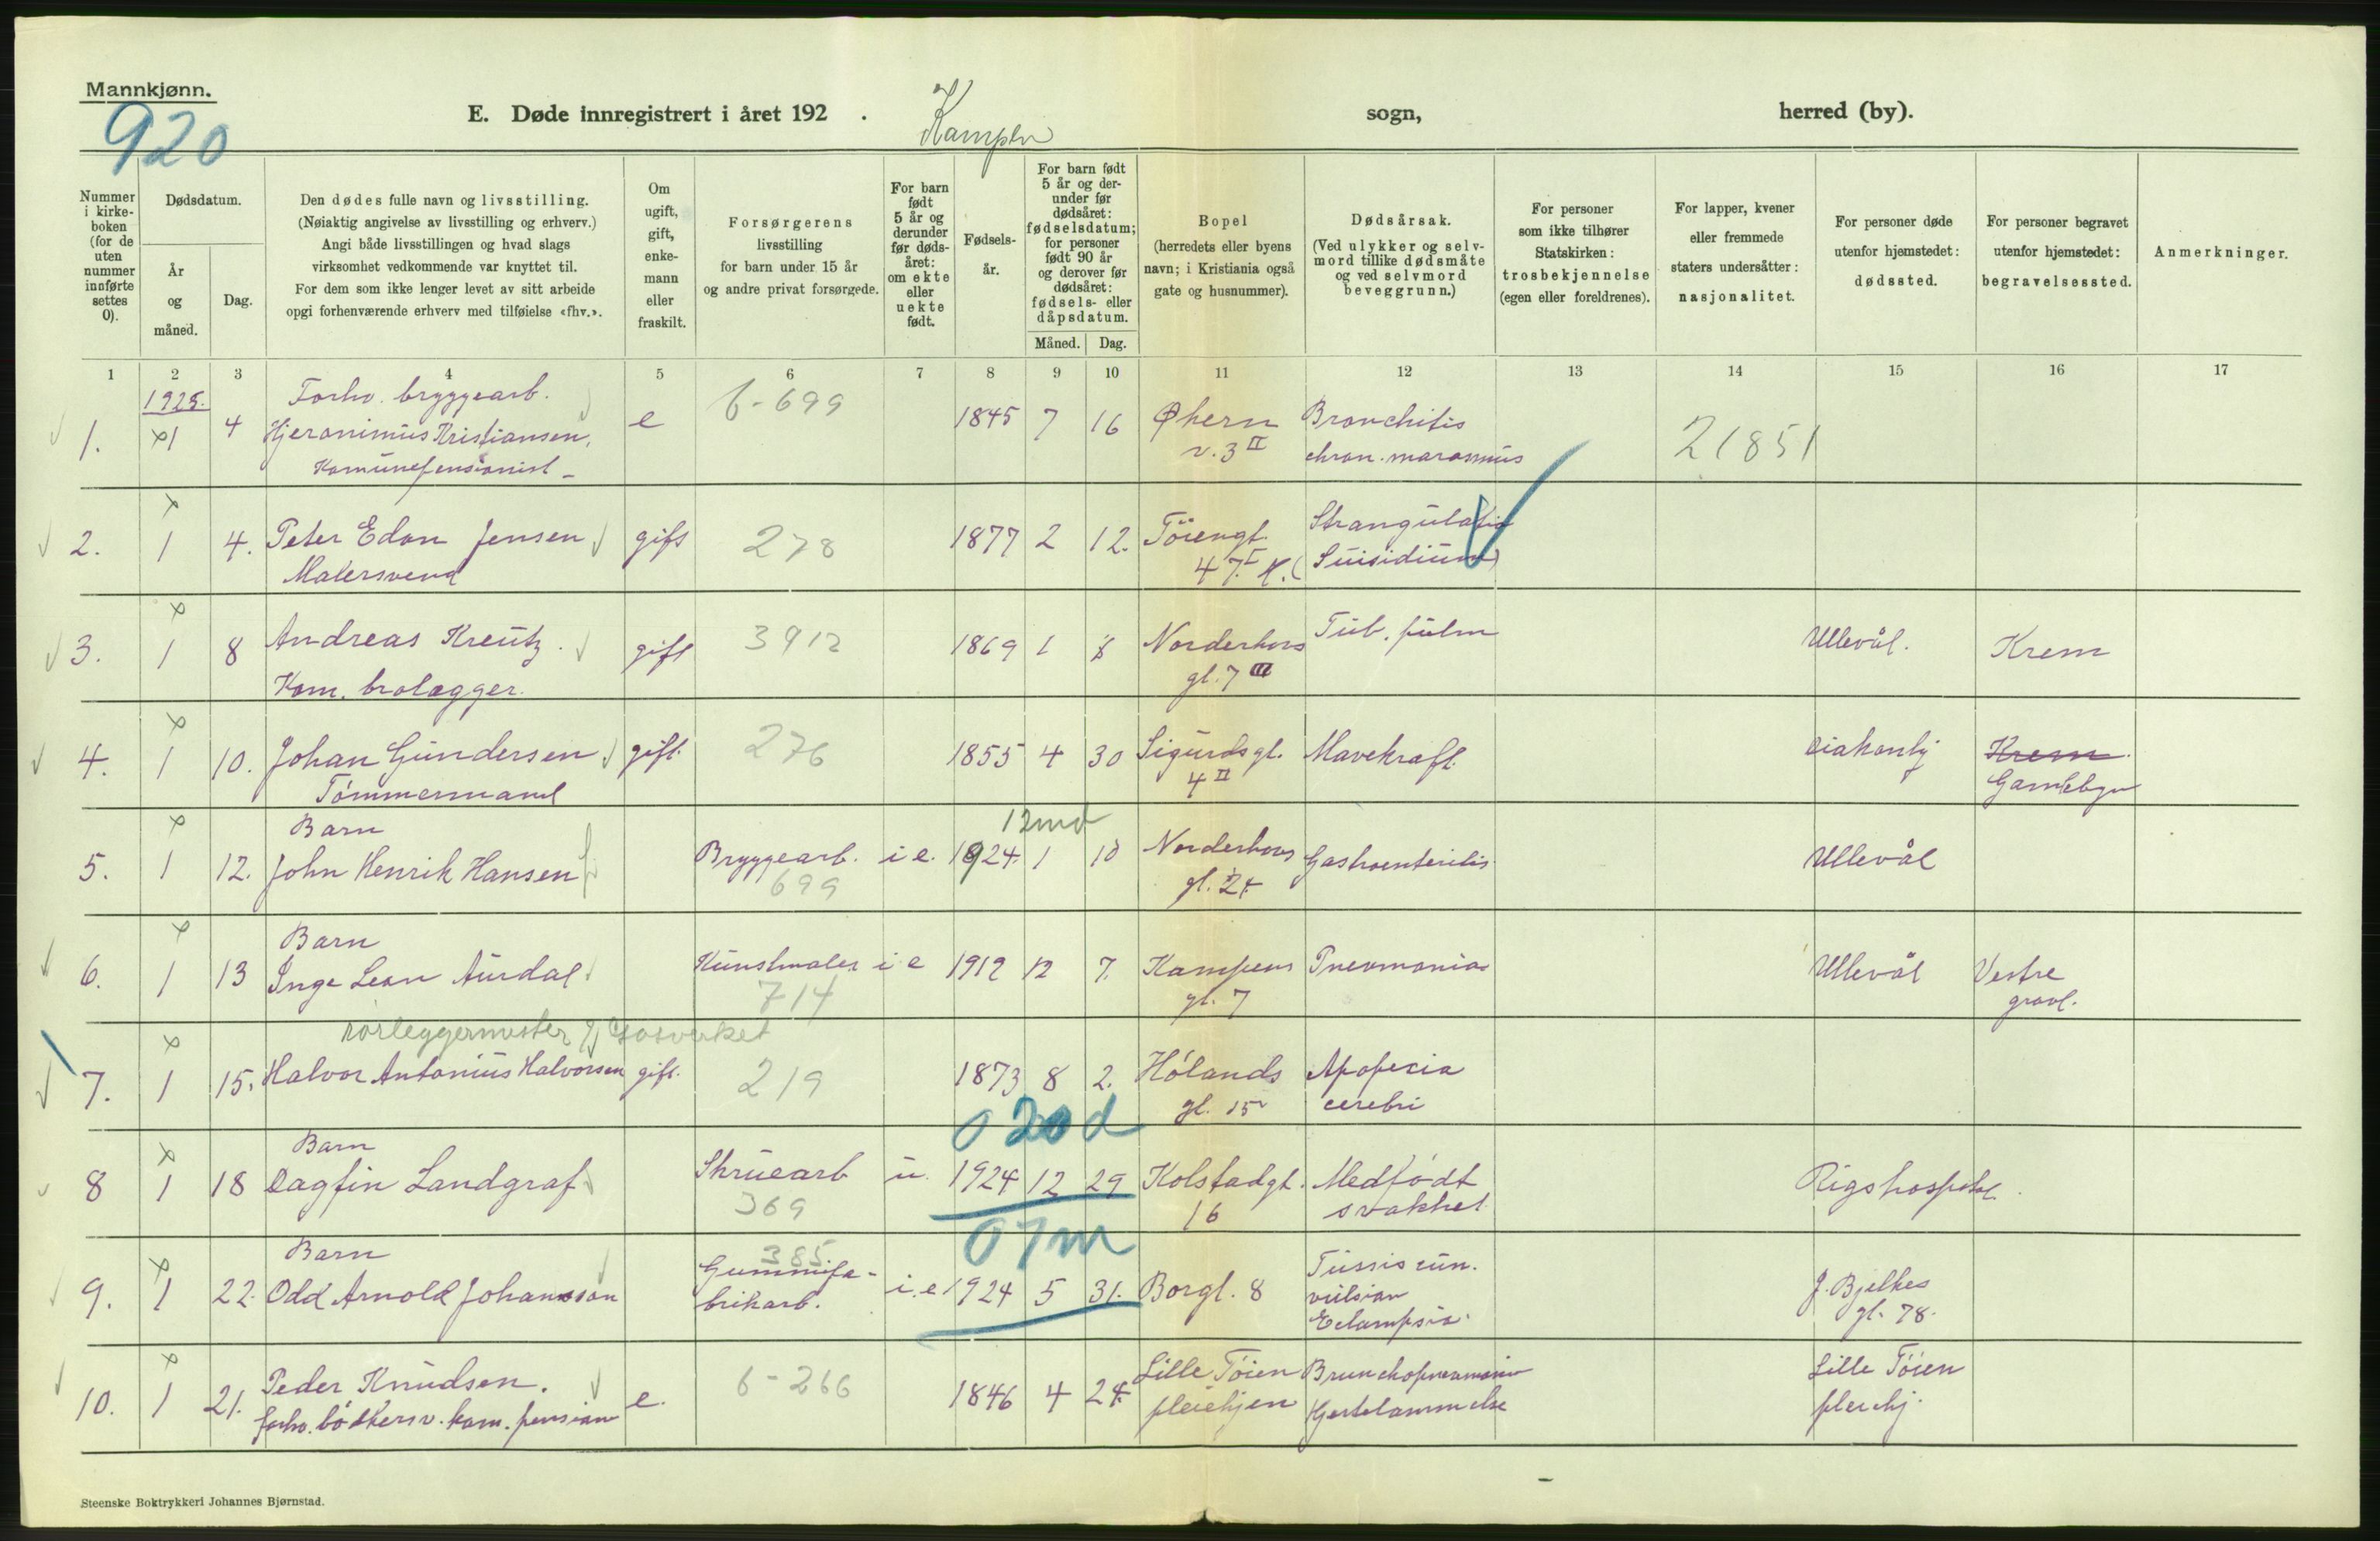 Mannkjønn.
920
E. Døde innregistrert i året 192 . Kampen sogn, herred (by).
Nummer i kirke-boken (for de uten nummer innførte settes 0).
Dødsdatum.
År og måned.
Dag.
Den dødes fulle navn og livsstilling.
(Nøiaktig angivelse av livsstilling og erhverv.)
Angi både livsstillingen og hvad slags
virksomhet vedkommende var knyttet til.
For dem som ikke lenger levet av sitt arbeide
opgi forhenværende erhverv med tilføielse «fhv.».
Om ugift, gift, enke-mann eller fraskilt.
Forsørgerens
livsstilling
for barn under 15 år
og andre privat forsørgede.
For barn født 5 år og derunder før døds-året: om ekte eller uekte født.
Fødsels-år.
For barn født 5 år og der-under før dødsåret: fødselsdatum; for personer født 90 år og derover før dødsåret: fødsels- eller dåpsdatum.
Måned. Dag.
Bopel
(herredets eller byens
navn; i Kristiania også
gate og husnummer).
Dødsårsak.
(Ved ulykker og selv-
mord tillike dødsmåte
og ved selvmord
beveggrunn.)
For personer
som ikke tilhører
Statskirken:
trosbekjennelse
(egen eller foreldrenes).
For lapper, kvener
eller fremmede
staters undersåtter:
nasjonalitet.
For personer døde
utenfor hjemstedet:
dødssted.
For personer begravet
utenfor hjemstedet:
begravelsessted.
Anmerkninger.
1 2 3 4 5 6 7 8 9 10 11 12 13 14 15 16 17
1925. Forhv. bryggearb. 6-699
1. 1 4 Hjeronimus Kristiansen, e 1845 7 16 Økern Bronchitis 21851
Komunepensionist v. 3 II chron. marasmus
2. 1 4. Peter Edon Jensen gift 278 1877 2 12. Töiengt. Strangulatio
Malersvend 47 I K. (Suisidium)
3. 1 8 Andreas Kreutz. gift 3912 1869 1 8 Norderhovs Tub. pulm Ullevål. Krem
Kom. brolægger. gt. 7 III
4. 1 10. Johan Gundersen gift. 276 1855 4 30 Sigurdsgt. Mavekræft. Diakonhj Krem.
Tömmermand 4 II Gamlebyn
Barn 12 md
5. 1 12. John Henrik Hansen Bryggearb. i e. 1924. 1 10 Norderhovs Gastroenteritis Ullevål
699 gt. 24
Barn
6. 1 13 Inge Leon Aurdal Kunstmaler i e 1912 12 7. Kampens Pneumonia Ullevål Vestre
714 gt. 7 gravl.
rørleggermester Gasverket
7. 1 15. Halvor Antonius Halvorsen gift. 219 1873 8 2. Hölands Apopexia
gt. 15 cerebri
0 20 d
Barn
8 1 18 Dagfin Landgraf Skruearb u. 1924 12 29 Kolstadgt. Medfödt Rigshospital.
369 16 svakhet
0 7 m
Barn 385
9. 1 22. Odd Arnold Johansson Gummifa- i.e 1924 5 31. Borgt. 8 Tussis cun. J. Bjelkes
brikarb. vulsian gt. 78.
Eclampsia.
10. 1 21. Peder Knudsen. e. 6-266 1846 4 24 Lille Töien Brunchopneumoni Lille Töien
forhv. bödkersv. kom. pension pleiehjen Hjertelammelse pleiehj.
Steenske Boktrykkeri Johannes Bjørnstad.